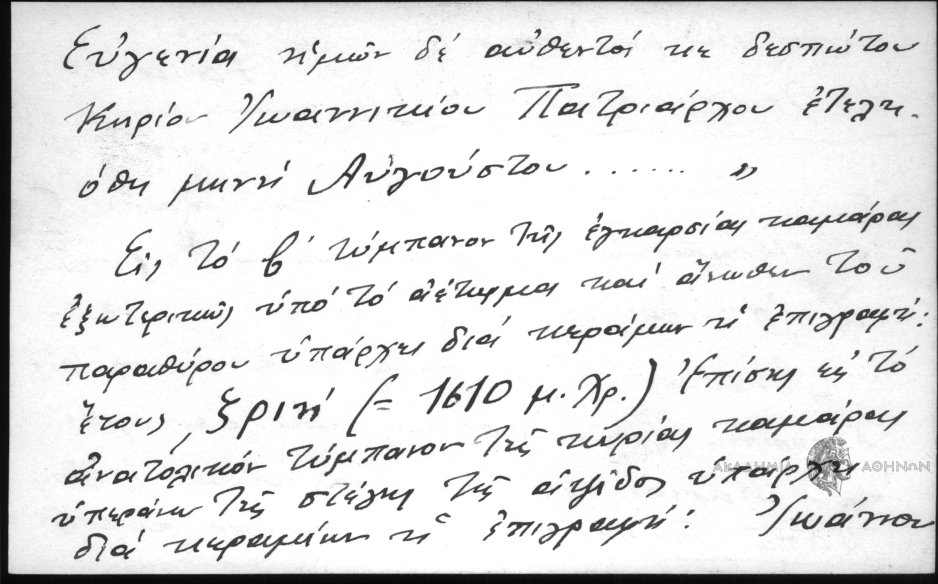 Εὐγενία ἡμῶν δέ αὐθεντοί κε δεσπώτου
Κυρίου Ἰωαννικίου Πατριάρχου ἐτελη-
όθη μηνή Αὐγούστου ...... "
Εἰς τό β' τύμπανον τῆς ἐγκαρσίας καμάρας
ἐξωτερικῶς ὑπό τό ἀέτωμα καί ἄνωθεν τοῦ
παραθύρου ὑπάρχει διά κεράμων ἡ ἐπιγραφή:
ἔτους ͵ζριή (= 1610 μ.Χρ.) Ἐπίσης εἰς τό
ἀνατολικόν τύμπανον τῆς κυρίας καμάρας
ὑπεράνω τῆς στέγης τῆς ἁψῖδος ὑπάρχει
διά κεραμίων ἡ ἐπιγραφή: Ἰωάννου
ΑΚΑΔΗΜΙΑ ΑΘΗΝΩΝ